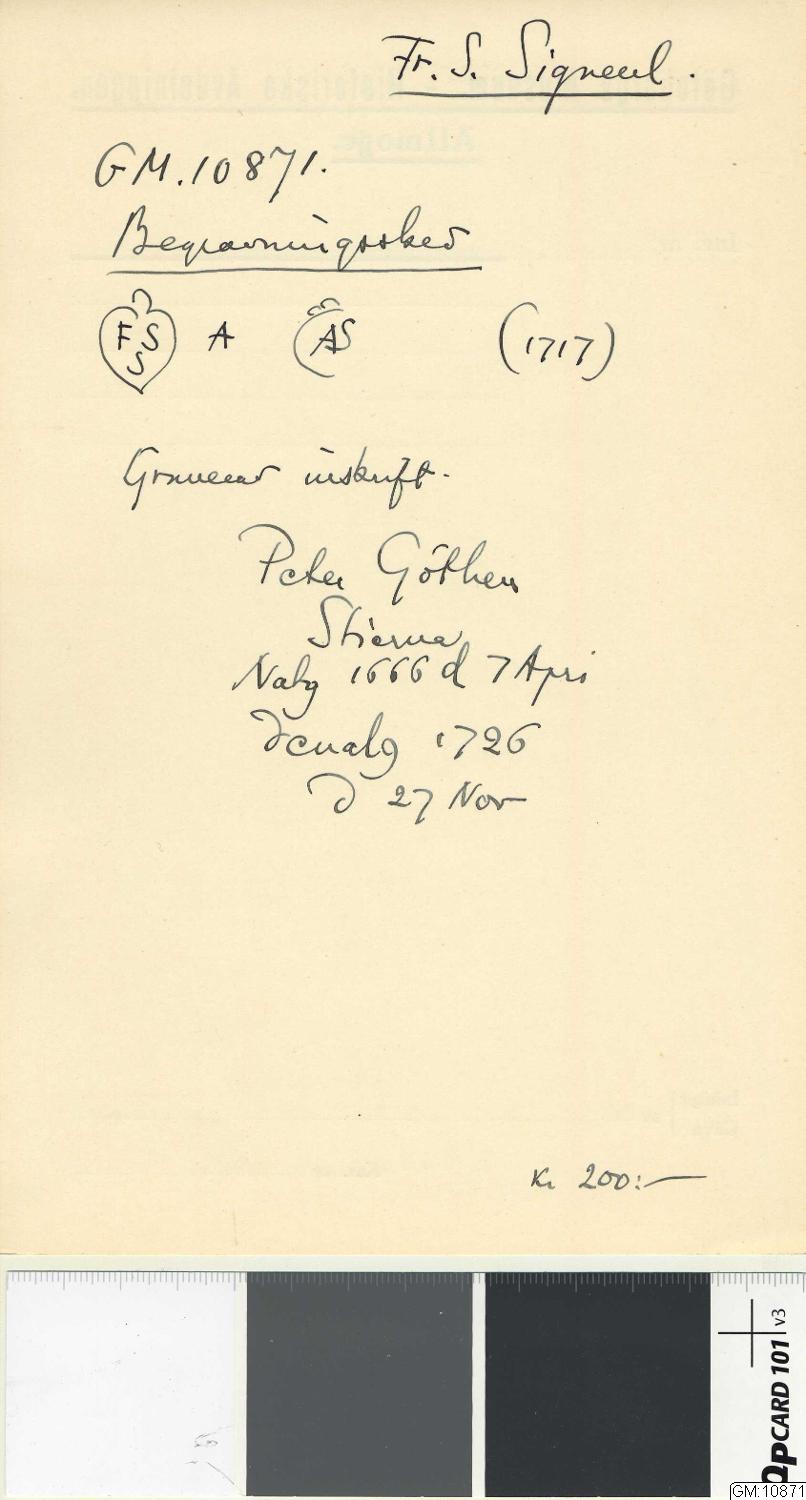 Fr. S. Signeul.
GM. 10871.
Begravningssked
FSS A AS (1717)
Graverad inskrift.
Peter Göthen
Stierna
Natg 1666 d 7 Apri
Denatg 1726
D 27 Nov
Kr 200:—
QPCARD 101 v3
GM:10871